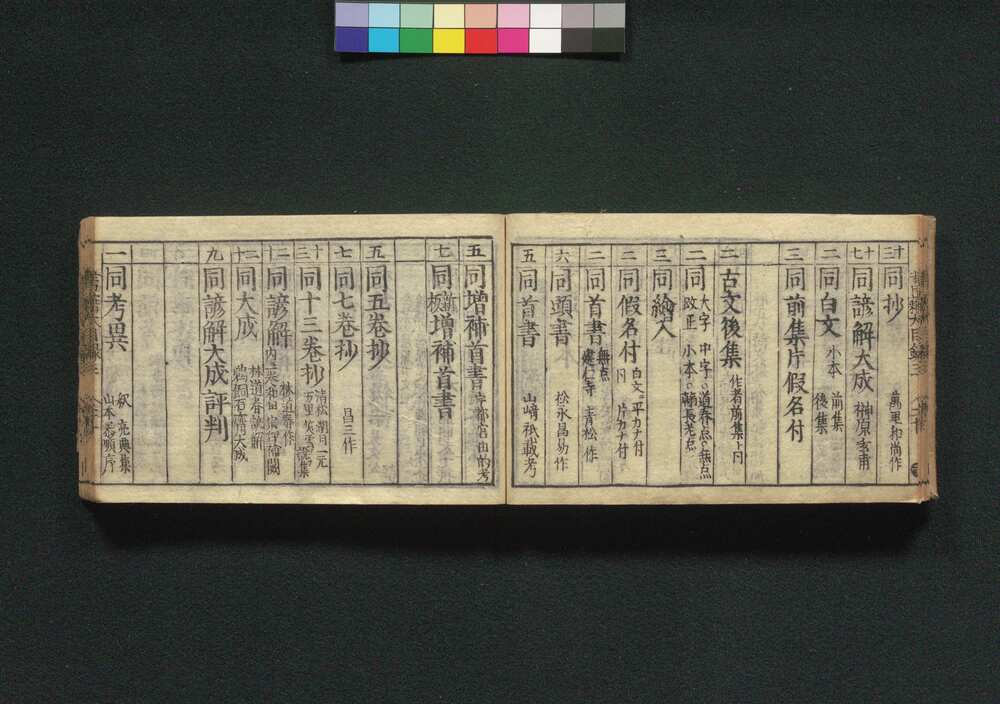 十三 同抄 萬里和尚作
十七 同諺解大成 榊原玄甫
二 同白文 小本 前集 後集
三 同前集片假名付
二 古文後集 作者前集ト同
二 同 大字 中字 道春点 無点 改正 小本
三 同繪入
二 同假名付 白文 平カナ付 同 片カナ付
二 同首書 無点 建仁寺 青松作
六 同頭書 松永昌易作
五 同首書 山﨑祇載考
五 同増補首書 宇都宮由的考
七 同新板増補首書
五 同五卷抄
七 同七卷抄 昌三作
十三 同十三卷抄
十二 同諺解 林道春作
二十 同大成 林道春諺解 鵜飼石斎大成
九 同諺解大成評判
一 同考異 釈亮典集 山本序